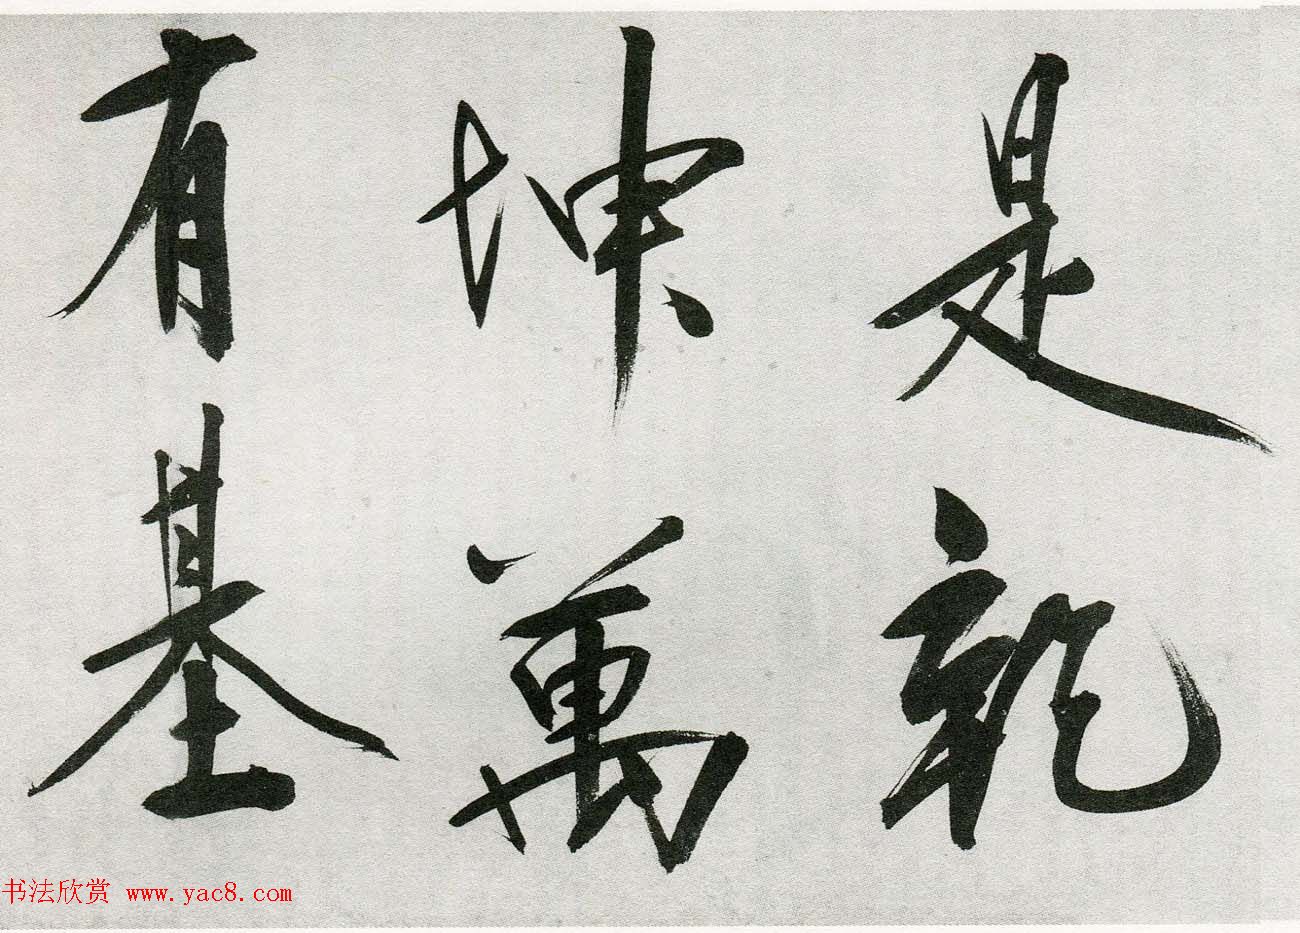 是乾
坤萬
有基
书法欣赏 www.yac8.com